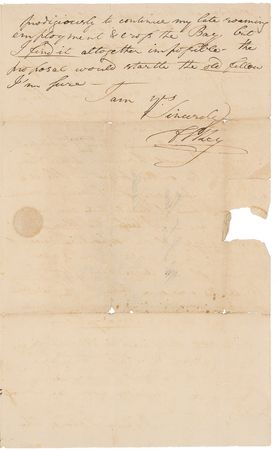 prodigiously to continue my late roaming
employment & cross the Bay, but
I find it altogether impossible – the
proposal would startle the old fellow
I'm sure – I am yrs
Sincerely
F S Key